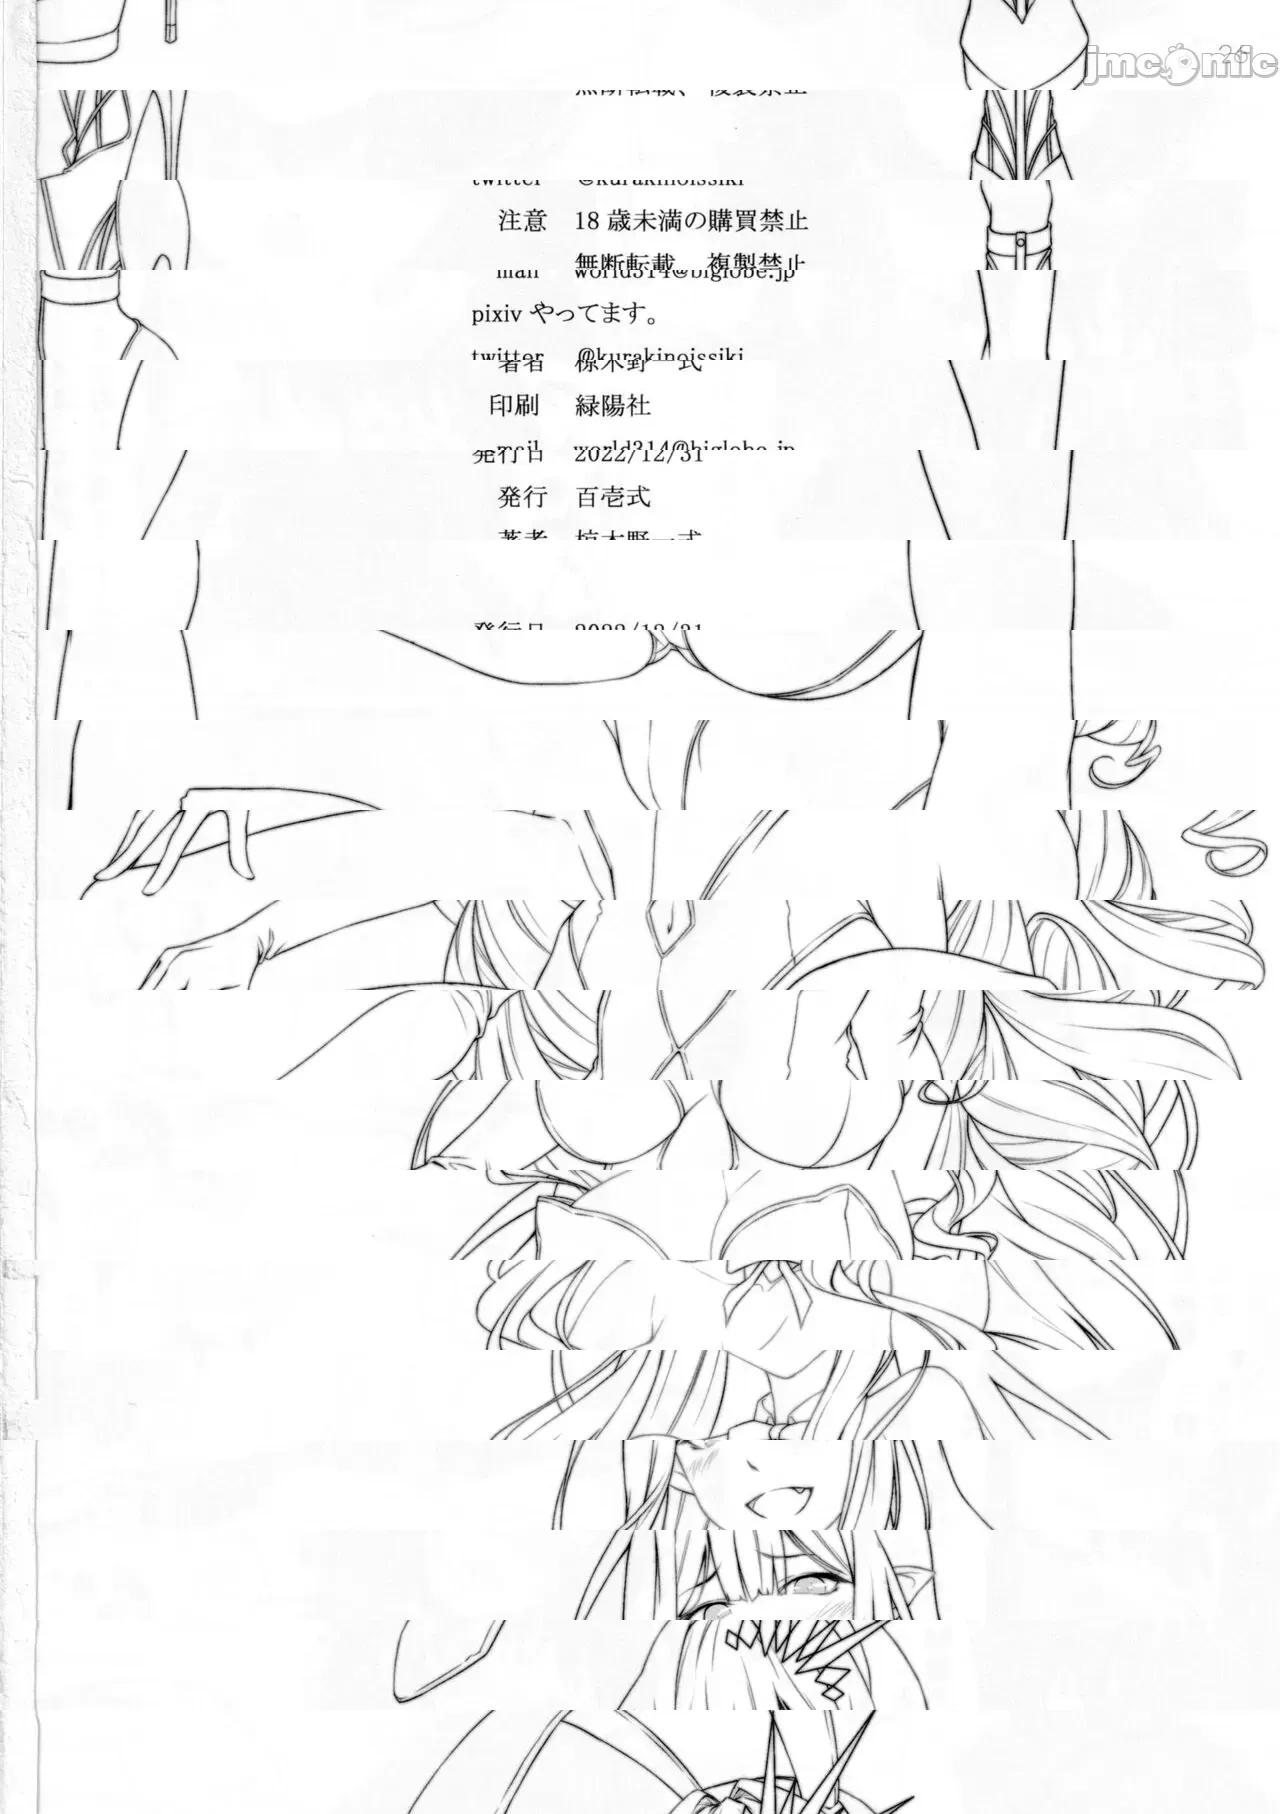 26
jmcomic
無断転載、複製禁止
twitter @kurakinoissiki
注意 18歳未満の購買禁止
無断転載、複製禁止
mail world314@biglobe.jp
pixivやってます。
twitter @kurakinoissiki
著者 椋木野一式
印刷 緑陽社
mail world314@biglobe.jp
発行日 2022/12/31
発行 百壱式
著者 椋木野一式
発行日 2022/12/31